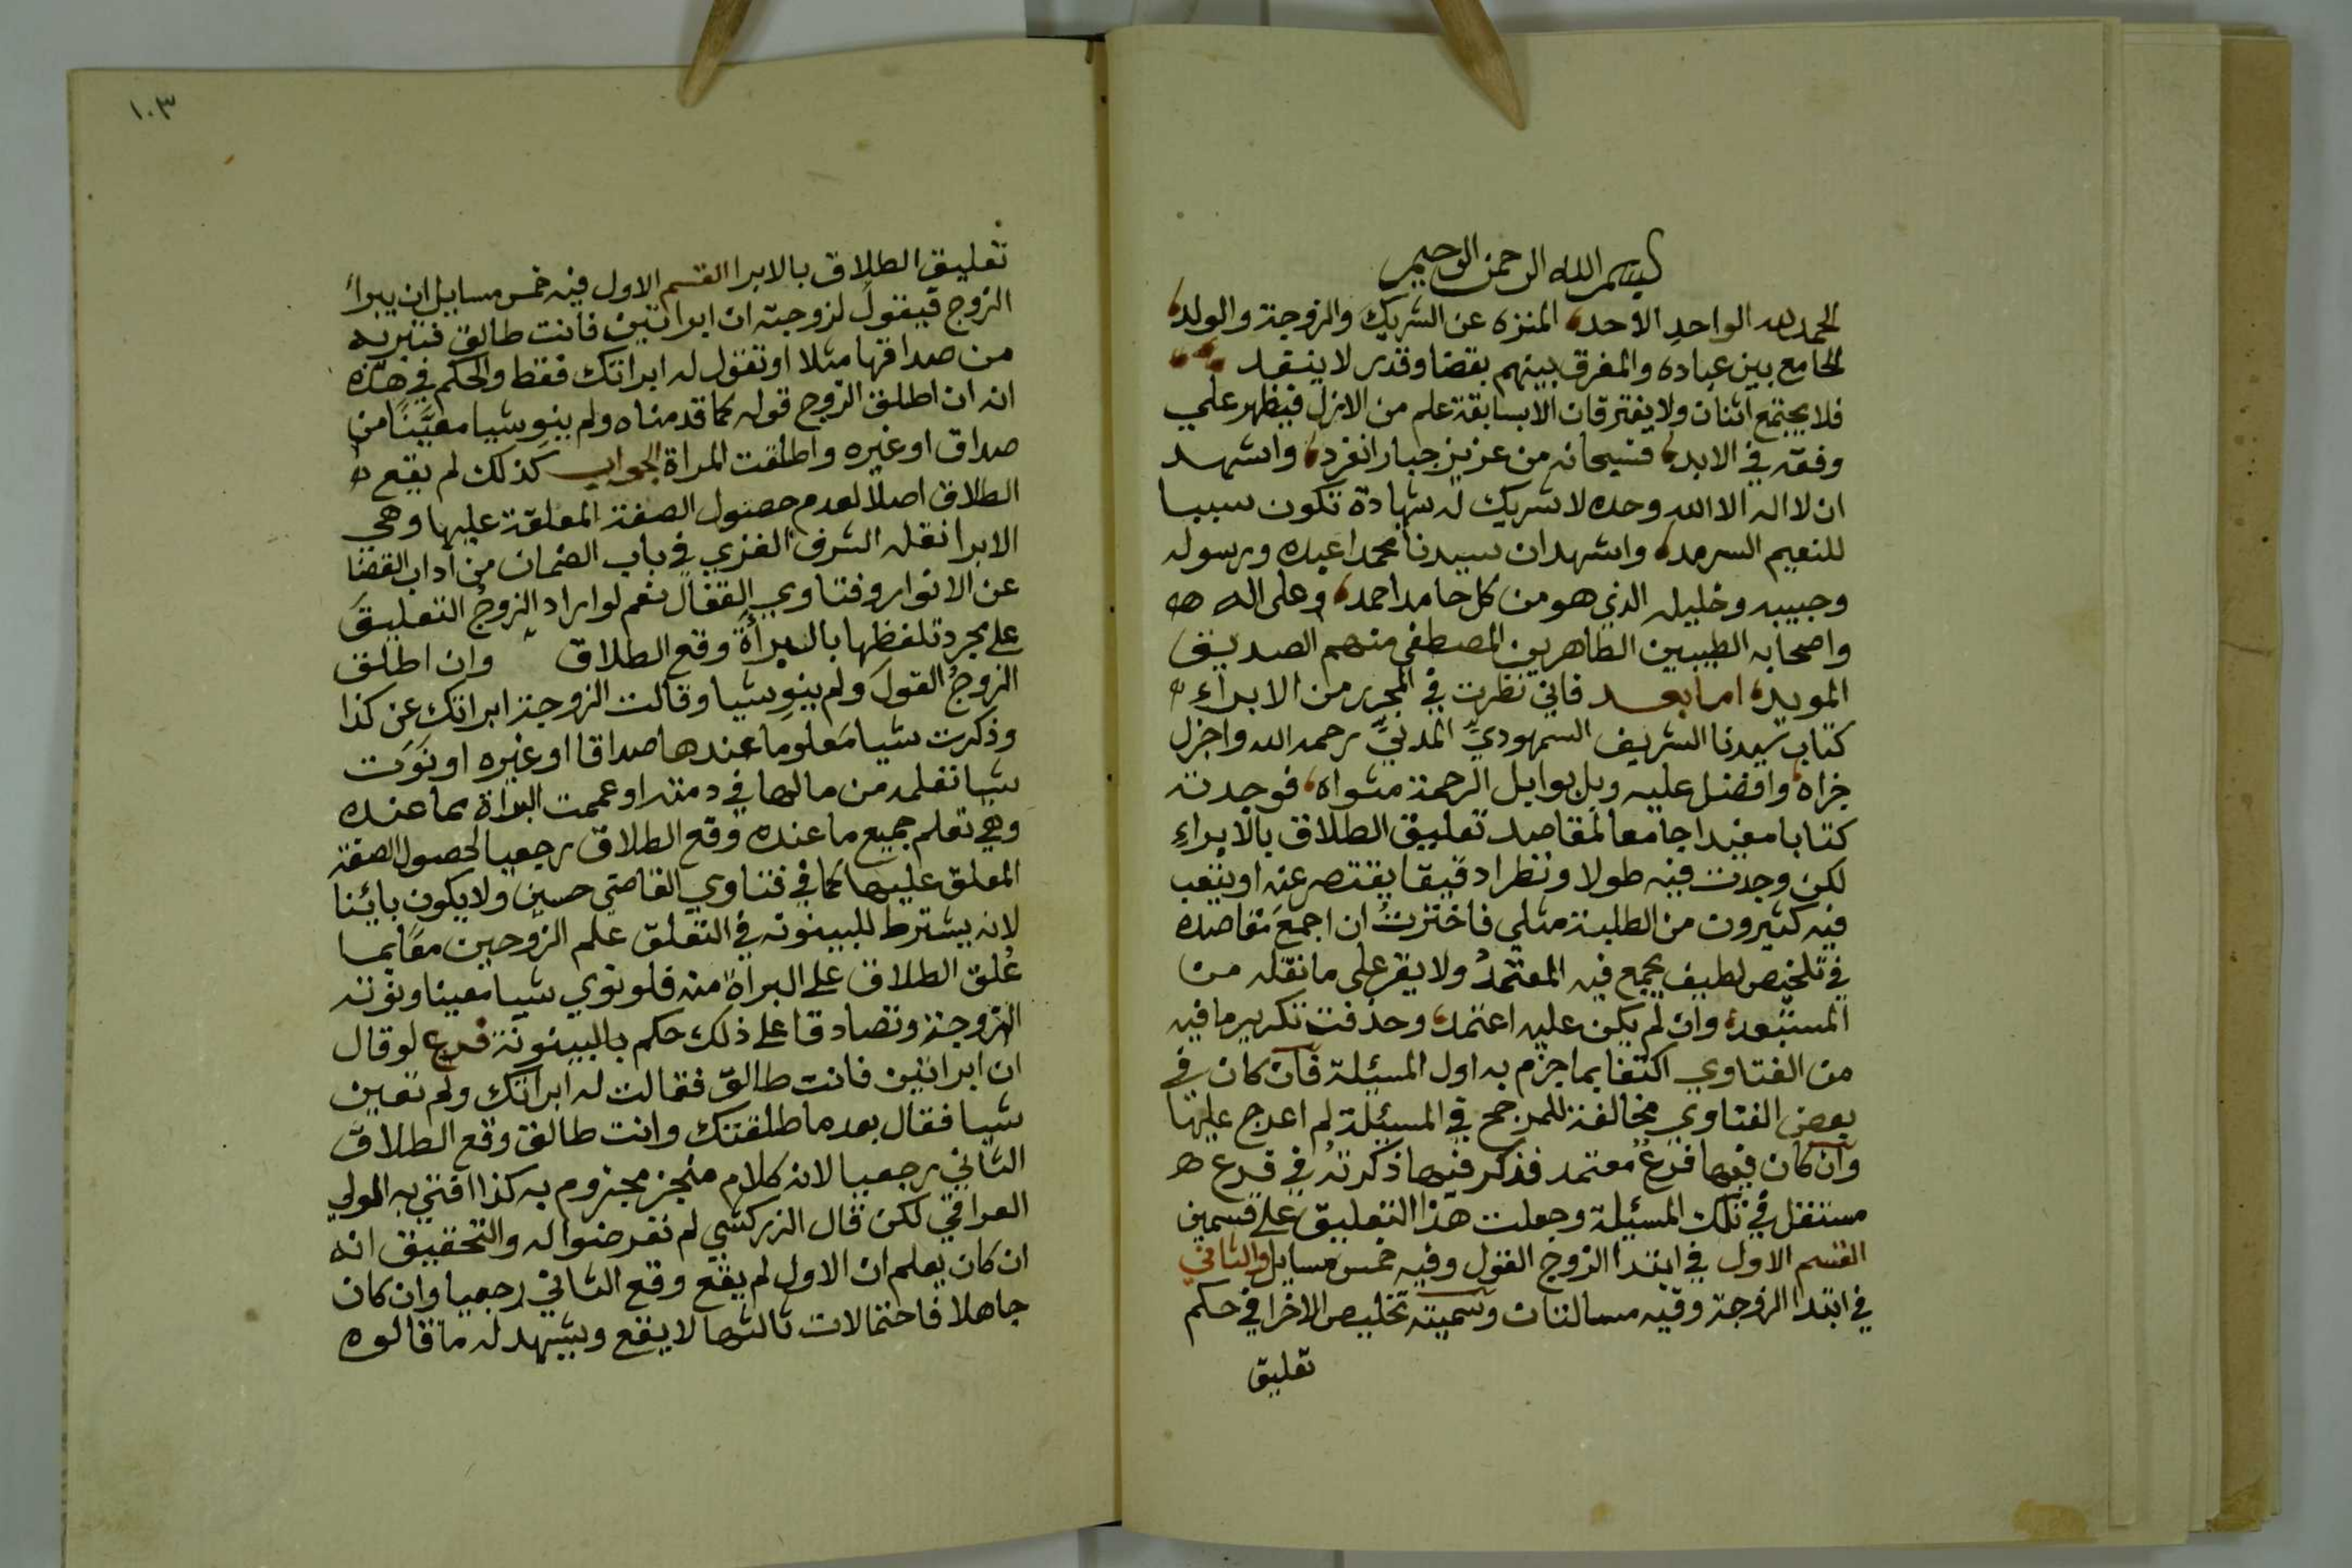 بسم الله الرحمن الرحيم
الحمد لله الواحد الاحد، المنزه عن الشريك والزوجة والولد،
الجامع بين عباده والمفرق بينهم بقضا وقدر لا ينفد
فلا يجتمع اثنان ولا يفترقان الا بسابقة علم من الازل فيظهر علي
وفقه في الابد، فسبحانه من عزيز جبار انفرد، واشهد
ان لا اله الا الله وحده لا شريك له شهادة تكون سببا
للنعيم السرمد، واشهد ان سيدنا محمدا عبده ورسوله
وحبيبه وخليله الذي هو من كل حامد احمد، وعلى اله
واصحابه الطيبين الطاهرين المصطفي منهم الصديق
المويد، اما بعد فاني نظرت في المحرر من الابراء
كتاب سيدنا الشريف السمهوديّ المدنيّ رحمه الله واجزل
جزاه، وافضل عليه وبل بوابل الرحمة مثواه، فوجدته
كتابا مفيدا جامعا لمقاصد تعليق الطلاق بالابراءِ
لكن وجدت فيه طولا ونظرا دقيقا يقتصر عنه او يتعب
فيه كثيرون من الطلبة مثلي فاخترتُ ان اجمعَ مقاصده
في تلخيص لطيف يجمع فيه المعتمدُ ولا يقر على ما نقله من
المستبعد، وان لم يكن عليه اعتمد، وحذفت تكرير ما فيه
من الفتاوي اكتفا بما اجزم به اول المسئلة فان كان في
بعض الفتاوي مخالفة للمرجح في المسئلة لم اعرج عليها
وان كان فيها فرعٌ معتمد فذكر فيها ذكرتُه في فرع
مستقل في تلك المسئلة وجعلت هذا التعليق على قسمين
القسم الاول في ابتدا الزوج القول وفيه خمس مسايل والثاني
في ابتدا الزوجة وفيه مسالتان وسميته تخليص الاخرا في حكم
تعليق
١٠٣
تعليق الطلاق بالابرا القسم الاول فيه خمس مسايل ان يبدأ
الزوج فيقول لزوجته ان ابراتيني فانت طالق فتبريه
من صداقها مثلا او تقول له ابراتك فقط والحكم في هذه
انه ان اطلق الزوج قوله كما قدمناه ولم ينوِ شيا معيَّنًا من
صداق او غيره واطلقت المراة الجواب كذلك لم يقع
الطلاق اصلا لعدم حصول الصفة المعلقة عليها وهي
الابرا نقله الشرف الغزي في باب الضمان من آداب القضا
عن الانوار وفتاوي القفال نعم لو اراد الزوجُ التعليقَ
على مجرد تلفظها بالبرأة وقع الطلاق وان اطلق
الزوجُ القولَ ولم ينوِ شيا وقالت الزوجة ابراتك عن كذا
وذكرت شيا مَعلوما عندها صداقا او غيره او نَوَت
شيا تعلمه من مالها في ذمته او عممت البراة بما عنده
وهي تعلم جميع ما عنده وقع الطلاق رجعيا لحصول الصفة
المعلق عليها كما في فتاوي القاضي حسين ولا يكون بائنا
لانه يشترط للبينونه في التعلق علم الزوجين معًا بما
عُلق الطلاق على البراة منه فلو نوي شيا معينا ونوته
الزوجة وتصادقا على ذلك حكم بالبينونة فرع لو قال
ان ابراتين فانت طالق فقالت له ابراتك ولم تعين
شيا فقال بعدها طلقتك وانت طالق وقع الطلاق
الثاني رجعيا لانه كلام منجز مجزوم به كذا افتي به الولي
العراقي لكن قال الزركشي لم تعرضوا له والتحقيق انه
ان كان يعلم ان الاول لم يقع وقع الثاني رجعيا وان كان
جاهلا فاحتمالات ثالثها لا يقع ويشهد له ما قالوه